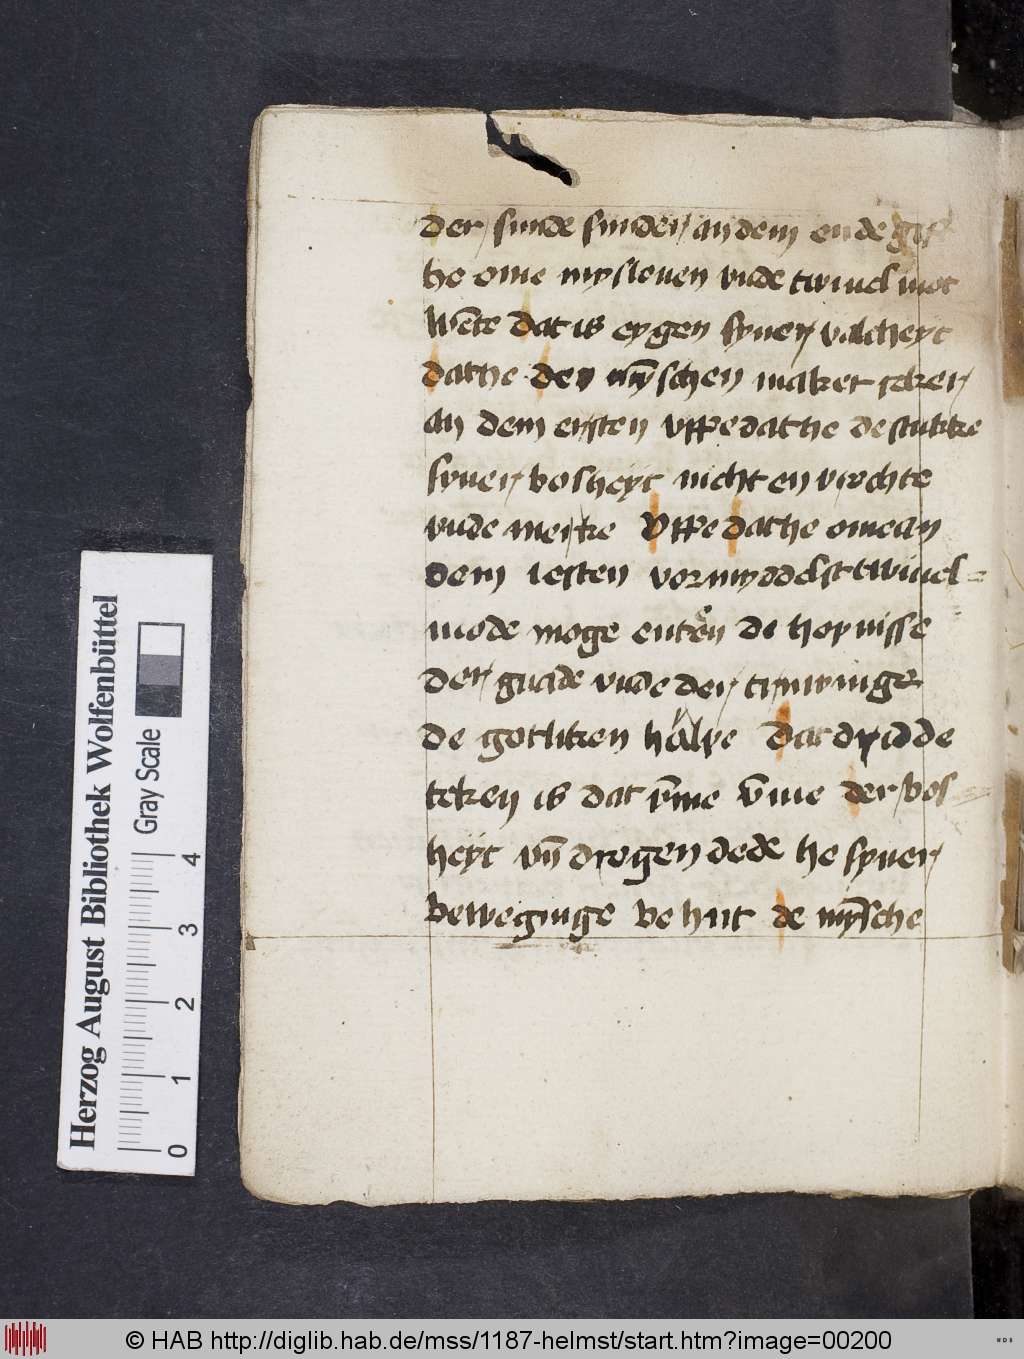 der sunde sunder an dem ende gift
he ome mysleuen vnde twiuel mot
wēte dat is eygen syner valcheyt
dat he den mȳschen maket seker
an dem ersten vppe dat he de stucke
syner bosheyt nicht en vrochte
vnde merke Vppe dat he ome an
dem lesten vormyddelst twiuel=
mode moge enten de hopnisse
der gnade vnde der
de gotliken hulpe Dat dridde
teken is dat der bos
heyt vn̄ drogen dede he syner
beweginge de mȳsche
Herzog August Bibliothek Wolfenbüttel
Gray Scale
0 1 2 3 4
© HAB http://diglib.hab.de/mss/1187-helmst/start.htm?image=00200
WDB